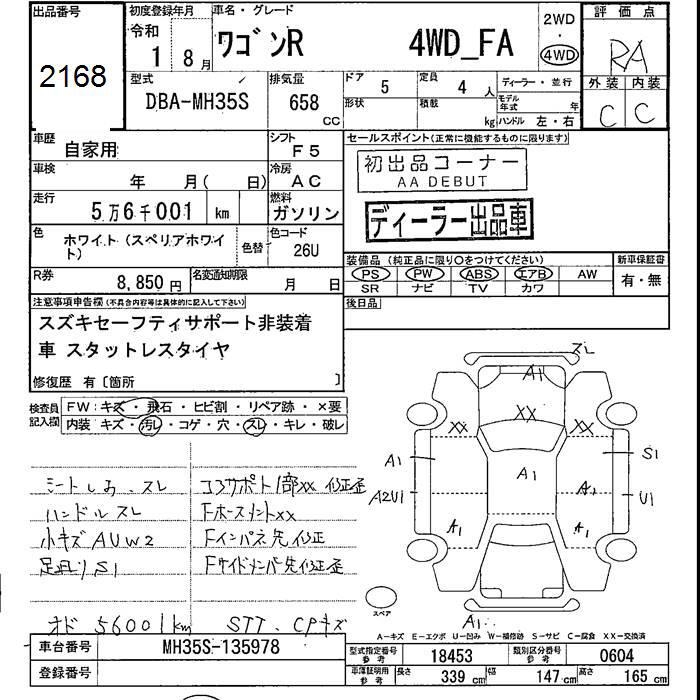 出品番号
2168
初度登録年月
令和
1 8月
車名・グレード
ワゴンR 4WD_FA
2WD
・
4WD
評価点
RA
外装 内装
C C
型式
DBA-MH35S
排気量
658
CC
ドア 5
形状
定員 4 人
積載 kg
ディーラー・並行
モデル年式 年
ハンドル 左・右
車歴 自家用
シフト F5
車検 年 月( 日)
冷房 AC
走行 5万6千001 km
燃料 ガソリン
色 ホワイト(スペリアホワイト)
色替
色コード 26U
R券 8,850円
名変通知期限 月 日
セールスポイント(正常に機能するものに限ります)
初出品コーナー
AA DEBUT
ディーラー出品車
装備品(純正品に限り○をつけてください)
PS PW ABS エアB AW
SR ナビ TV カワ
新車保証書
有・無
後日品
注意事項申告欄(不具合内容等は具体的に記入して下さい)
スズキセーフティサポート非装着
車 スタットレスタイヤ
修復歴 有〔箇所 〕
検査員記入欄
FW:キズ・飛石・ヒビ割・リペア跡・×要
内装 キズ・汚レ・コゲ・穴・スレ・キレ・破レ
シートしみ、スレ
ハンドルスレ
小キズAUW2
足廻りS1
コアサポート1部XX 修正歪
FホースメントXX
Fインパネ先修正
Fサイドメンバー先修正歪
オド 56001km STT.CPキズ
スレ
A1
XX
XX XX
A1 A1 S1
A2U1 A1 U1
A1 A1
A1
スペア
A−キズ E−エクボ U−凹み W−補修跡 S−サビ C−腐食 XX−交換済
車台番号 MH35S-135978
登録番号
型式指定番号 参考 18453
類別区分番号 参考 0604
車庫証明用 参考 長さ 339 cm 幅 147 cm 高さ 165 cm